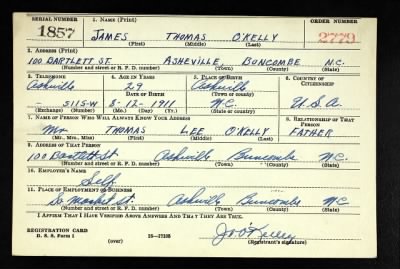 SERIAL NUMBER 1. NAME (Print) ORDER NUMBER
1857 JAMES THOMAS O'KELLY 2779
(First) (Middle) (Last)
2. ADDRESS (Print)
100 BARTLETT ST. ASHEVILLE BUNCOMBE N.C.
(Number and street or R. F. D. number) (Town) (County) (State)
3. TELEPHONE 4. AGE IN YEARS 5. PLACE OF BIRTH 6. COUNTRY OF CITIZENSHIP
Asheville 29 Asheville
DATE OF BIRTH (Town or county)
5115-W 8-12-1911 N.C. U.S.A.
(Exchange) (Number) (Mo.) (Day) (Yr.) (State or country)
7. NAME OF PERSON WHO WILL ALWAYS KNOW YOUR ADDRESS 8. RELATIONSHIP OF THAT PERSON
Mr. THOMAS LEE O'KELLY FATHER
(Mr., Mrs., Miss) (First) (Middle) (Last)
9. ADDRESS OF THAT PERSON
100 Bartlett St. Asheville Buncombe N.C.
(Number and street or R. F. D. number) (Town) (County) (State)
10. EMPLOYER'S NAME
Self
11. PLACE OF EMPLOYMENT OR BUSINESS
So Market St. Asheville Buncombe NC
(Number and street or R. F. D. number) (Town) (County) (State)
I AFFIRM THAT I HAVE VERIFIED ABOVE ANSWERS AND THAT THEY ARE TRUE.
REGISTRATION CARD
D. S. S. Form 1 (over) 16-17105 J. O'Kelley
(Registrant's signature)